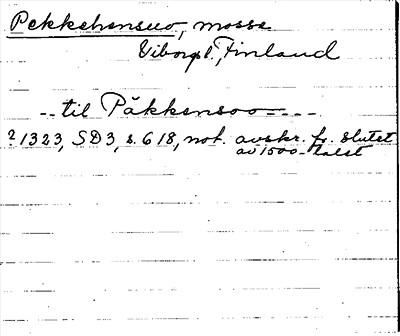 Pekkehensuo, mosse
Viborgs l., Finland
-- til Päkkensoo ----
? 1323, SD3, s. 618, not. avskr. fr. slutet
av 1500-talet